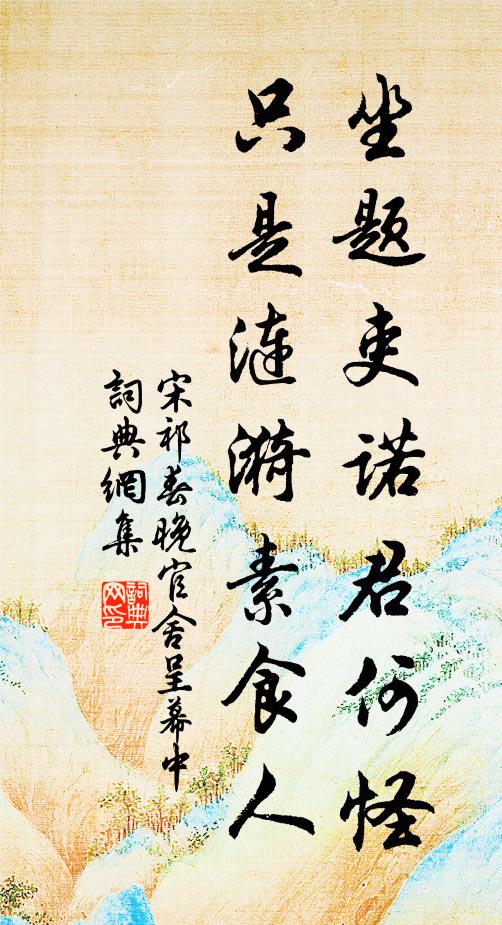 坐题吏诺君何怪
只是涟漪素食人
宋祁春晚官舍呈幕中
詞典網集
詞典網印